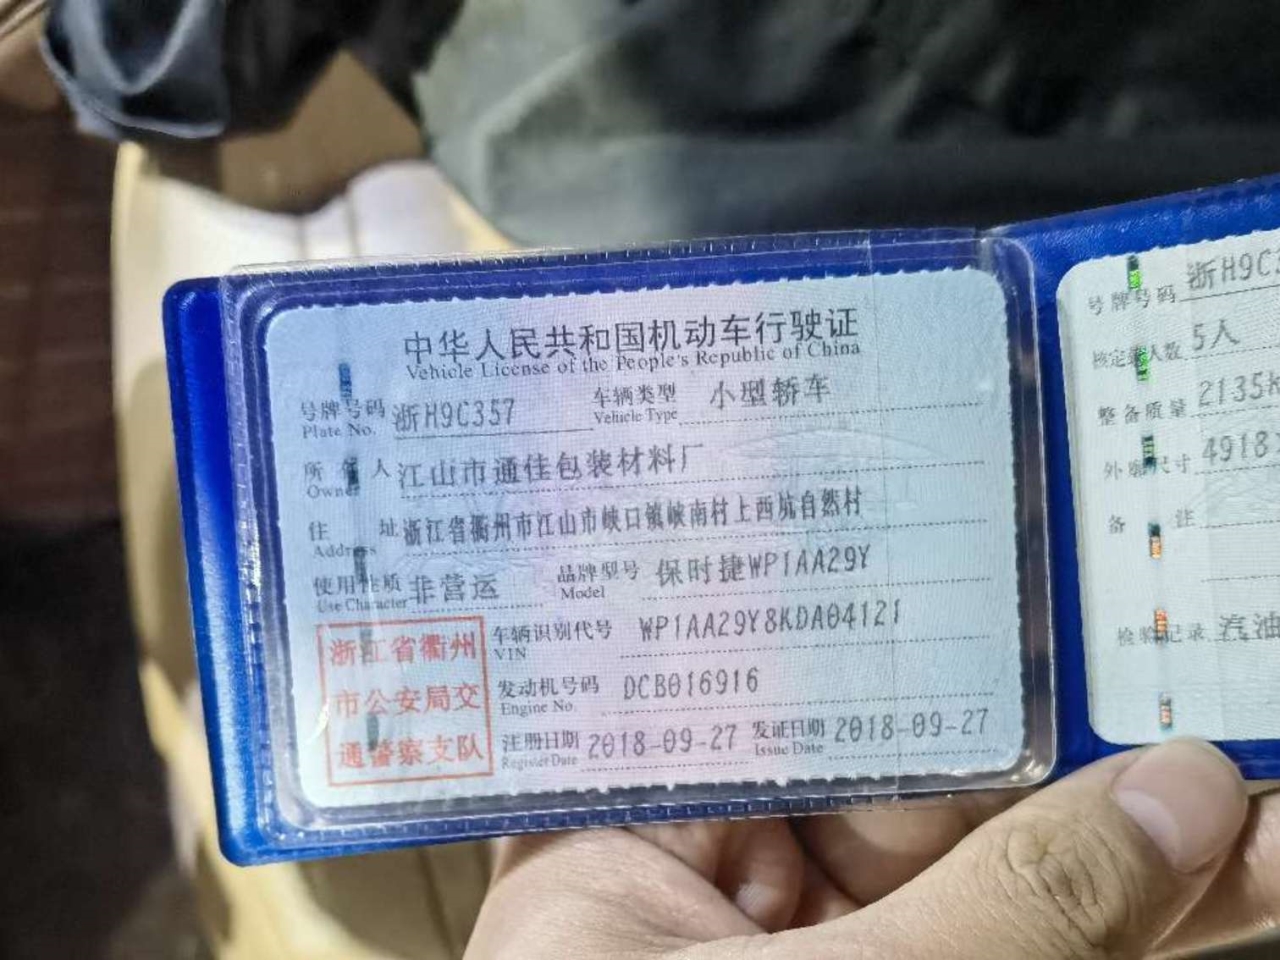 中华人民共和国机动车行驶证
Vehicle License of the People's Republic of China
号牌号码 浙H9C357 车辆类型 小型轿车
Plate No. Vehicle Type
所有人 江山市通佳包装材料厂
Owner
住址 浙江省衢州市江山市峡口镇峡南村上西坑自然村
Address
使用性质 非营运 品牌型号 保时捷WP1AA29Y
Use Character Model
车辆识别代号 WP1AA29Y8KDA04121
VIN
发动机号码 DCB016916
Engine No.
注册日期 2018-09-27 发证日期 2018-09-27
Register Date Issue Date
浙江省衢州
市公安局交
通警察支队
号牌号码 浙H9C
核定载人数 5人
整备质量 2135k
外廓尺寸 4918
备注
检验记录 汽油